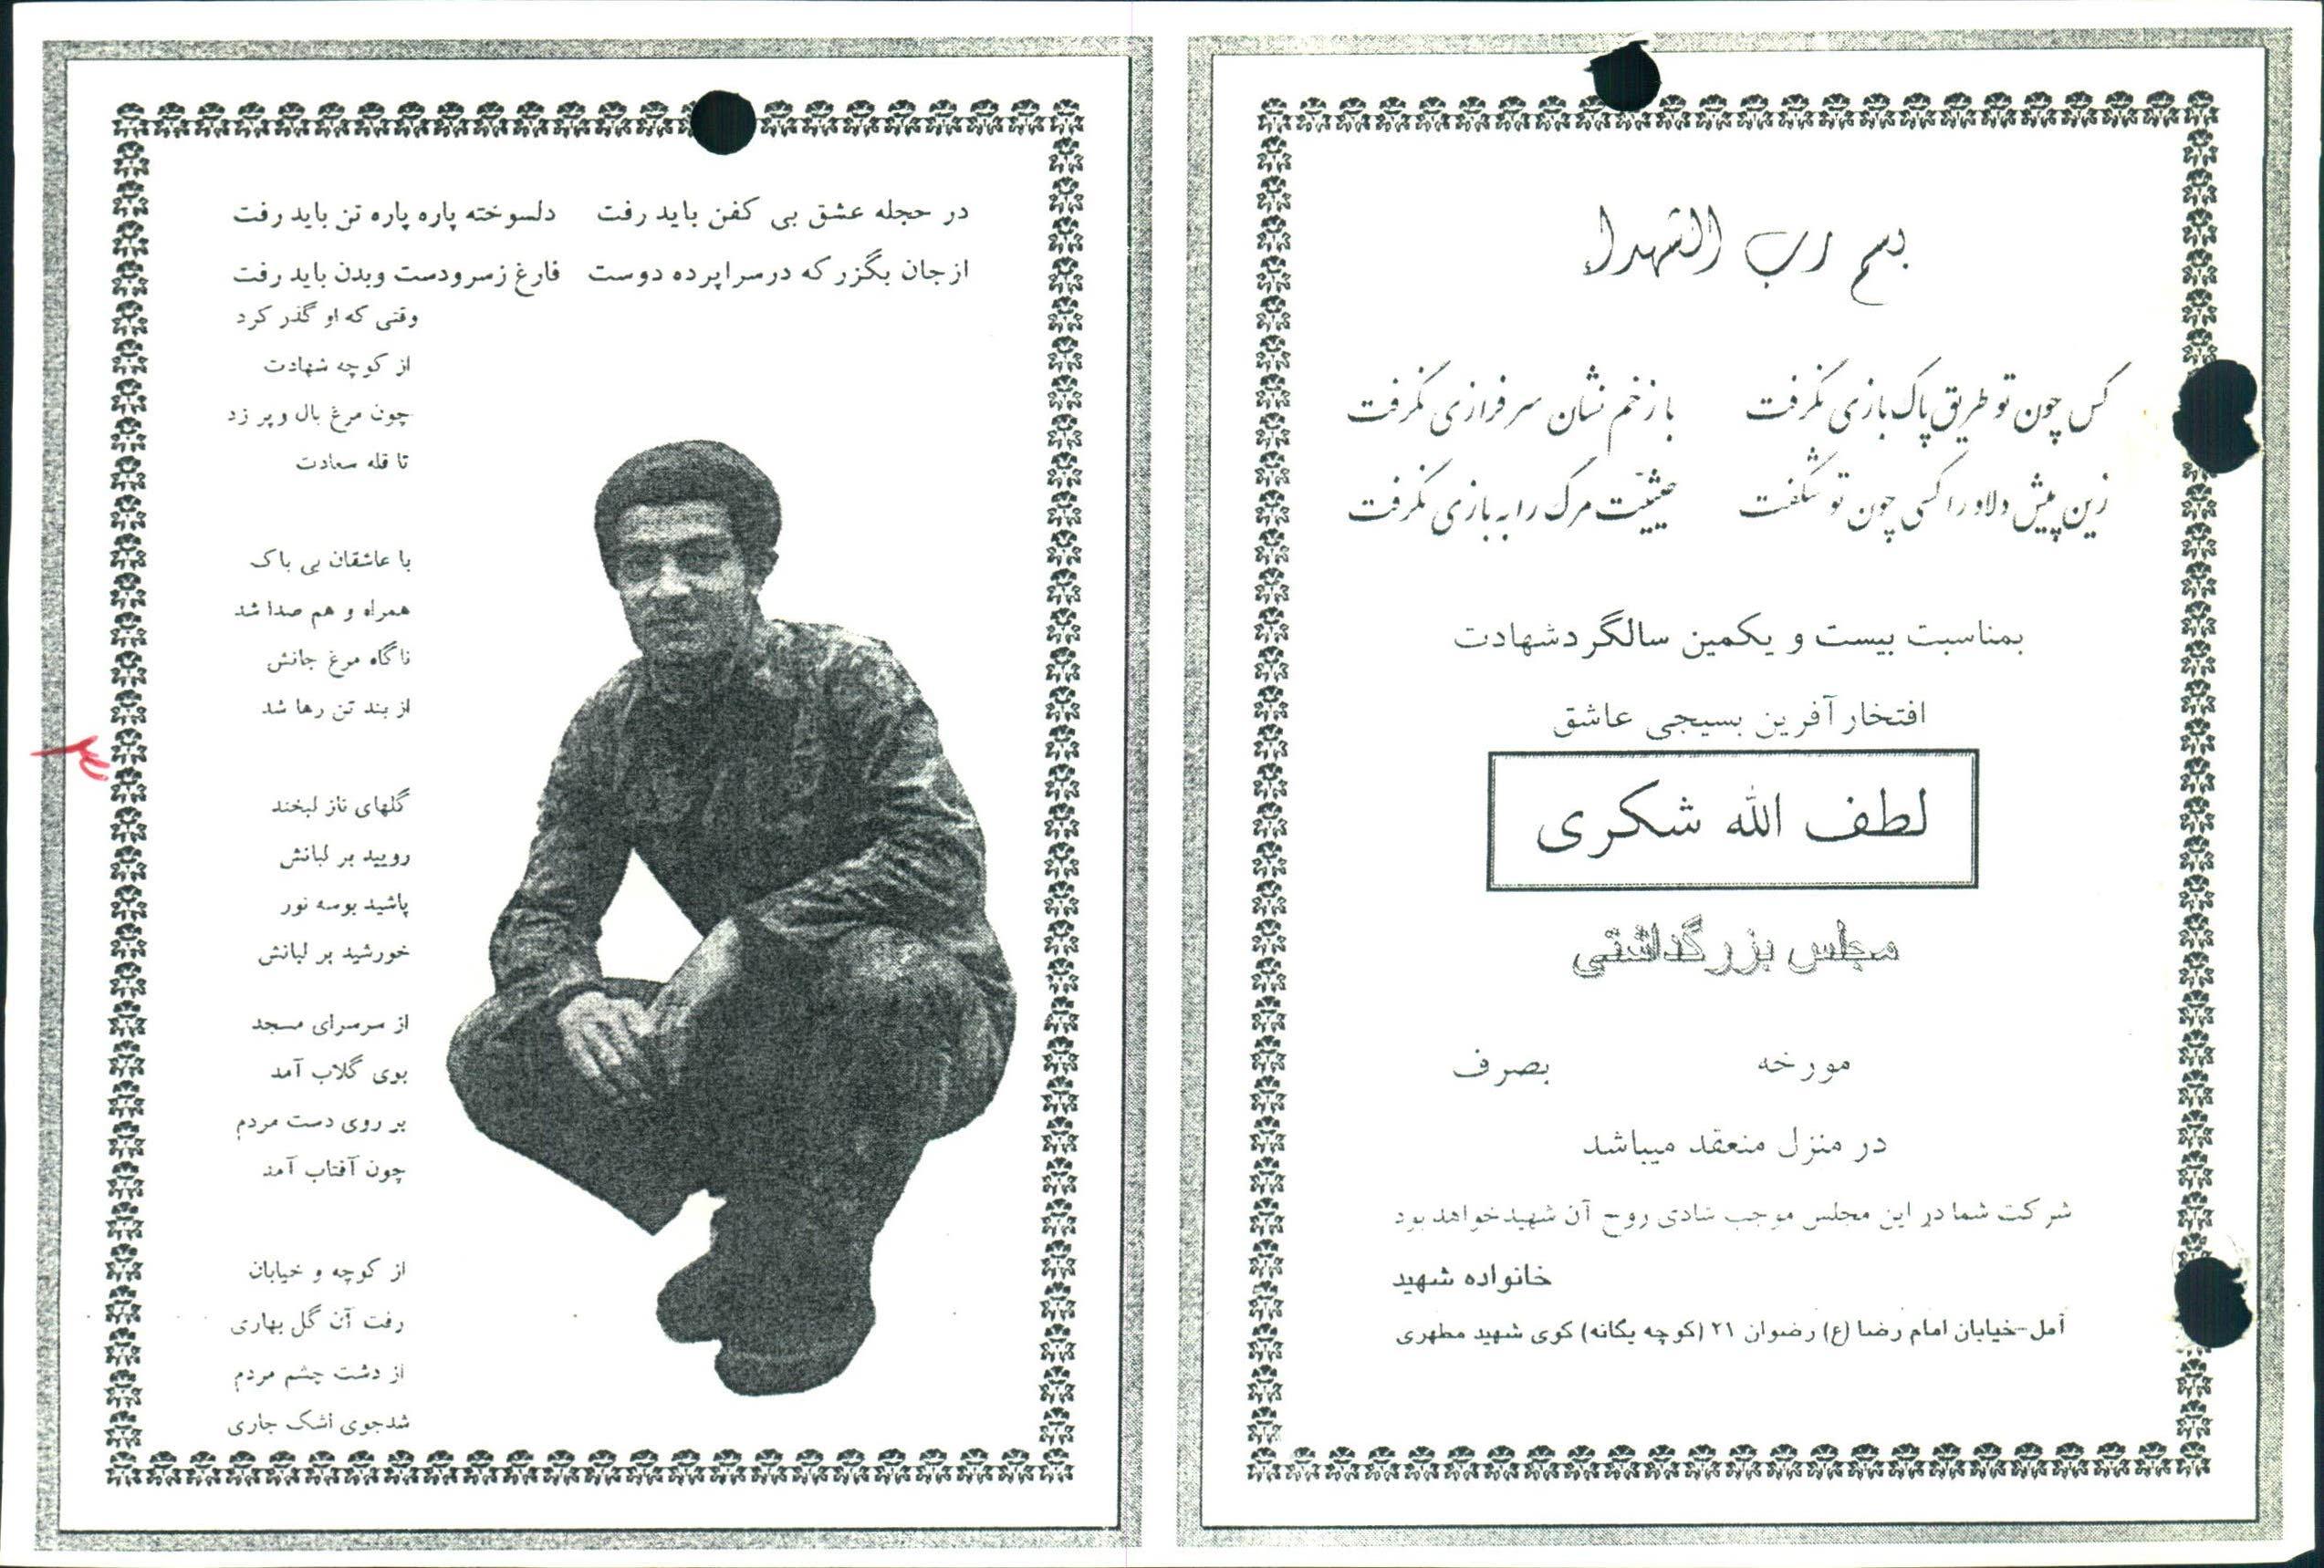 بسم رب الشهدا
کس چون تو طریق پاک بازی نگرفت    با زخم نشان سرفرازی نگرفت
زین پیش دلاورا کسی چون تو شگفت    حیثیت مرگ را به بازی نگرفت
بمناسبت بیست و یکمین سالگرد شهادت
افتخار آفرین بسیجی عاشق
لطف الله شکری
مجلس بزرگداشتی
مورخه    بصرف
در منزل منعقد میباشد
شرکت شما در این مجلس موجب شادی روح آن شهید خواهد بود
خانواده شهید
آمل-خیابان امام رضا (ع) رضوان ۲۱ (کوچه یگانه) کوی شهید مطهری
در حجله عشق بی کفن باید رفت    دلسوخته پاره پاره تن باید رفت
از جان بگزر که در سراپرده دوست    فارغ ز سر و دست و بدن باید رفت
وقتی که او گذر کرد
از کوچه شهادت
چون مرغ بال و پر زد
تا قله سعادت
با عاشقان بی باک
همراه و هم صدا شد
ناگاه مرغ جانش
از بند تن رها شد
گلهای ناز لبخند
رویید بر لبانش
پاشید بوسه نور
خورشید بر لبانش
از سرسرای مسجد
بوی گلاب آمد
بر روی دست مردم
چون آفتاب آمد
از کوچه و خیابان
رفت آن گل بهاری
از دشت چشم مردم
شد جوی اشک جاری